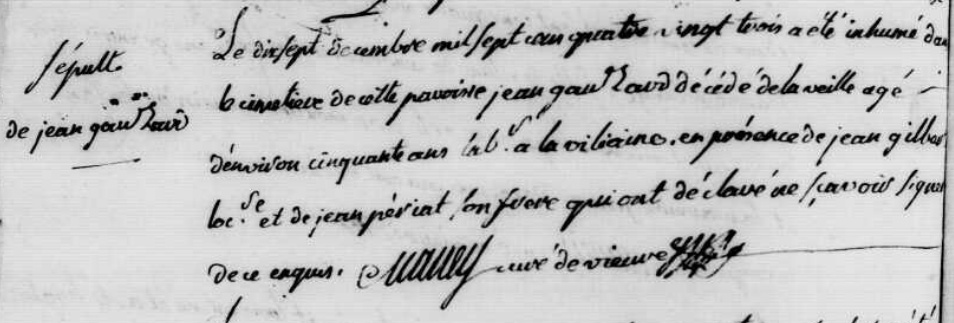 Sépult.
de jean gaultard
Le dixsept decembre mil sept cent quatre vingt trois a été inhumé dan
le cimetiere de cette paroisse jean gaultard décédé de la veille agé
d'environ cinquante ans lab.r a la viliaine. en présence de jean gilber
loc.re et de jean périat son frere qui ont déclaré ne sçavoir signer
de ce enquis. curé de vieure